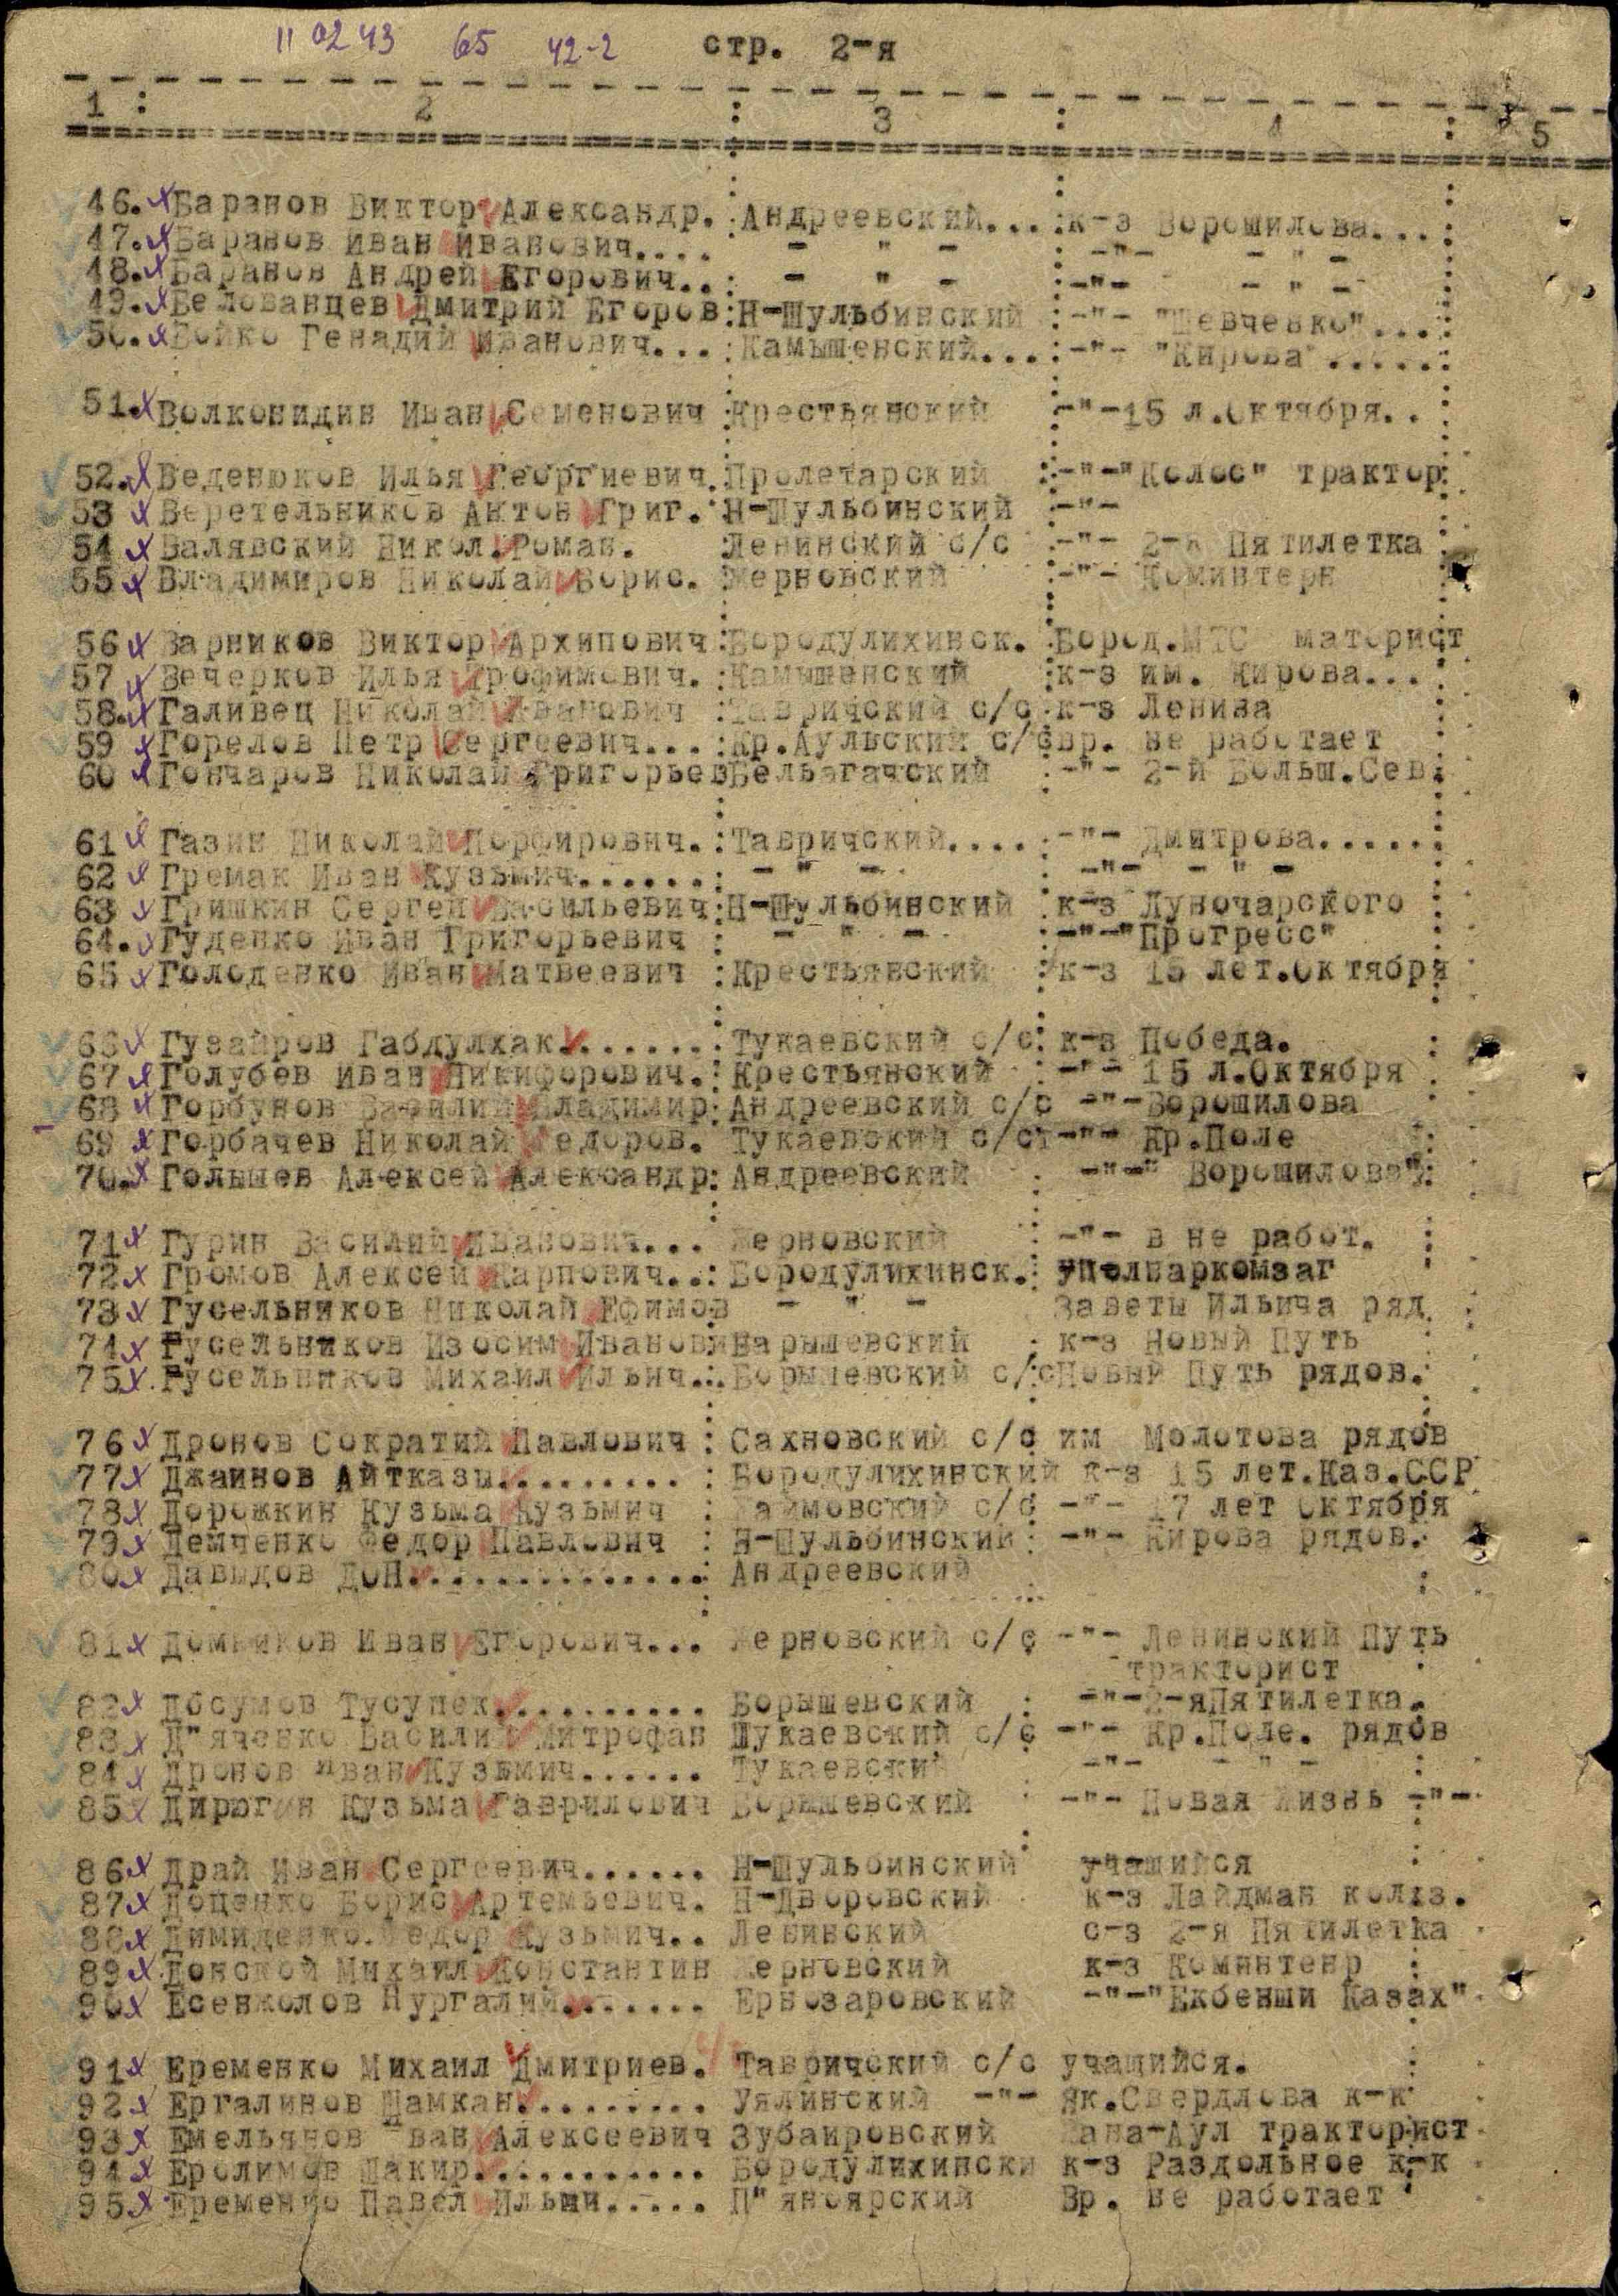 11 02 43 65 42-2 стр. 2-я
1 : 2 : 3 : 4 : 5
46. Баранов Виктор Александр. : Андреевский... : к-з Ворошилова... :
47. Баранов Иван Иванович.... - " - -"- - " -
48. Баранов Андрей Егорович.. : - " - -"- - " -
49. Белованцев Дмитрий Егоров : Н-Шульбинский : -"- "Шевченко"...
50. Бойко Генадий Иванович... : Камышенский... : -"- "Кирова"......
51. Волконидин Иван Семенович : Крестьянский -"-15 л.Октября..
52. Веденюков Илья Георгиевич. : Пролетарский -"-"Колос" трактор
53 Веретельников Антон Григ. : Н-Шульбинский -"-
54 Валявский Никол. Роман. Ленинский с/с -"- 2-я Пятилетка
55 Владимиров Николай Борис. Жерновский -"- Коминтерн
56 Варников Виктор Архипович : Бородулихинск. Бород.МТС материст
57 Вечерков Илья Трофимович. : Камышенский : к-з им. Кирова...
58. Галивец Николай Иванович : Тавричский с/с : к-з Ленина
59 Горелов Петр Сергеевич... : Кр.Аульский с/с вр. не работает
60 Гончаров Николай Григорьев Бельагачский -"- 2-й Больш.Сев.
61 Газин Николай Порфирович. : Тавричский.... -"- Дмитрова......
62 Гремак Иван Кузьмич....... : - " - -"- - " -
63 Гришкин Сергей Васильевич : Н-Шульбинский к-з Луночарского
64. Гуденко Иван Григорьевич : - " - -"-"Прогресс"
65 Голоденко Иван Матвеевич : Крестьянский : к-з 15 лет.Октября
66 Гузайров Габдулхак........ Тукаевский с/с : к-з Победа.
67 Голубев Иван Никифорович. : Крестьянский -"- 15 л.Октября
68 Горбунов Василий Владимир : Андреевский с/с -"-Ворошилова
69 Горбачев Николай Федоров. Тукаевский с/ст-"- Кр.Поле
70. Голышев Алексей Александр : Андреевский -"-" Ворошилова"
71 Гурин Василий Иванович... Жерновский -"- в не работ.
72 Громов Алексей Карпович.. : Бородулихинск. : уполнаркомзаг
73 Гусельников Николай Ефимов - " - Заветы Ильича ряд
74 Гусельников Изосим Иванови Барышевский к-з Новый Путь
75 Гусельников Михаил Ильич... Борышевский с/с Новый Путь рядов.
76 Дронов Сократий Павлович : Сахновский с/с им Молотова рядов
77 Джаинов Айтказы.......... : Бородулихинский к-з 15 лет.Каз.ССР
78 Дорожкин Кузьма Кузьмич : с/с -"- 17 лет Октября
79 Демченко Федор Павлович : Н-Шульбинский : -"- Кирова рядов.
80 Давыдов ДОН.............. : Андреевский
81 Домников Иван Егорович... Жерновский с/с -"- Ленинский Путь
тракторист
82 Досумов Тусупек.......... Борышевский : -"-2-яПятилетка.
83 Д"яченко Василий Митрофан Шукаевский с/с -"- Кр.Поле. рядов
84 Дронов Иван Кузьмич...... Тукаевский -"- - " -
85 Дирюгин Кузьма Гаврилович Борышевский -"- Новая Жизнь -"-
86 Драй Иван Сергеевич...... Н-Шульбинский учащийся
87 Доценко Борис Артемьевич. Н-Дворовский к-з Лайдман колхз.
88 Димиденко.Федор Кузьмич.. Ленинский с-з 2-я Пятилетка
89 Донской Михаил Константин Жерновский к-з Коминтенр
90 Есенжолов Нургалий....... Ернозаровский -"-"Екбенши Казах"
91 Еременко Михаил Дмитриев. Тавричский с/с учащийся.
92 Ергалинов Шамкан......... Уялинский -"- Як.Свердлова к-к
93 Емельянов Иван Алексеевич Зубаировский Жана-Аул тракторист
94 Еролимов Шакир........... Бородулихински к-з Раздольное к-к
95 Еременко Павел Ильин..... П"яноярский Вр. не работает